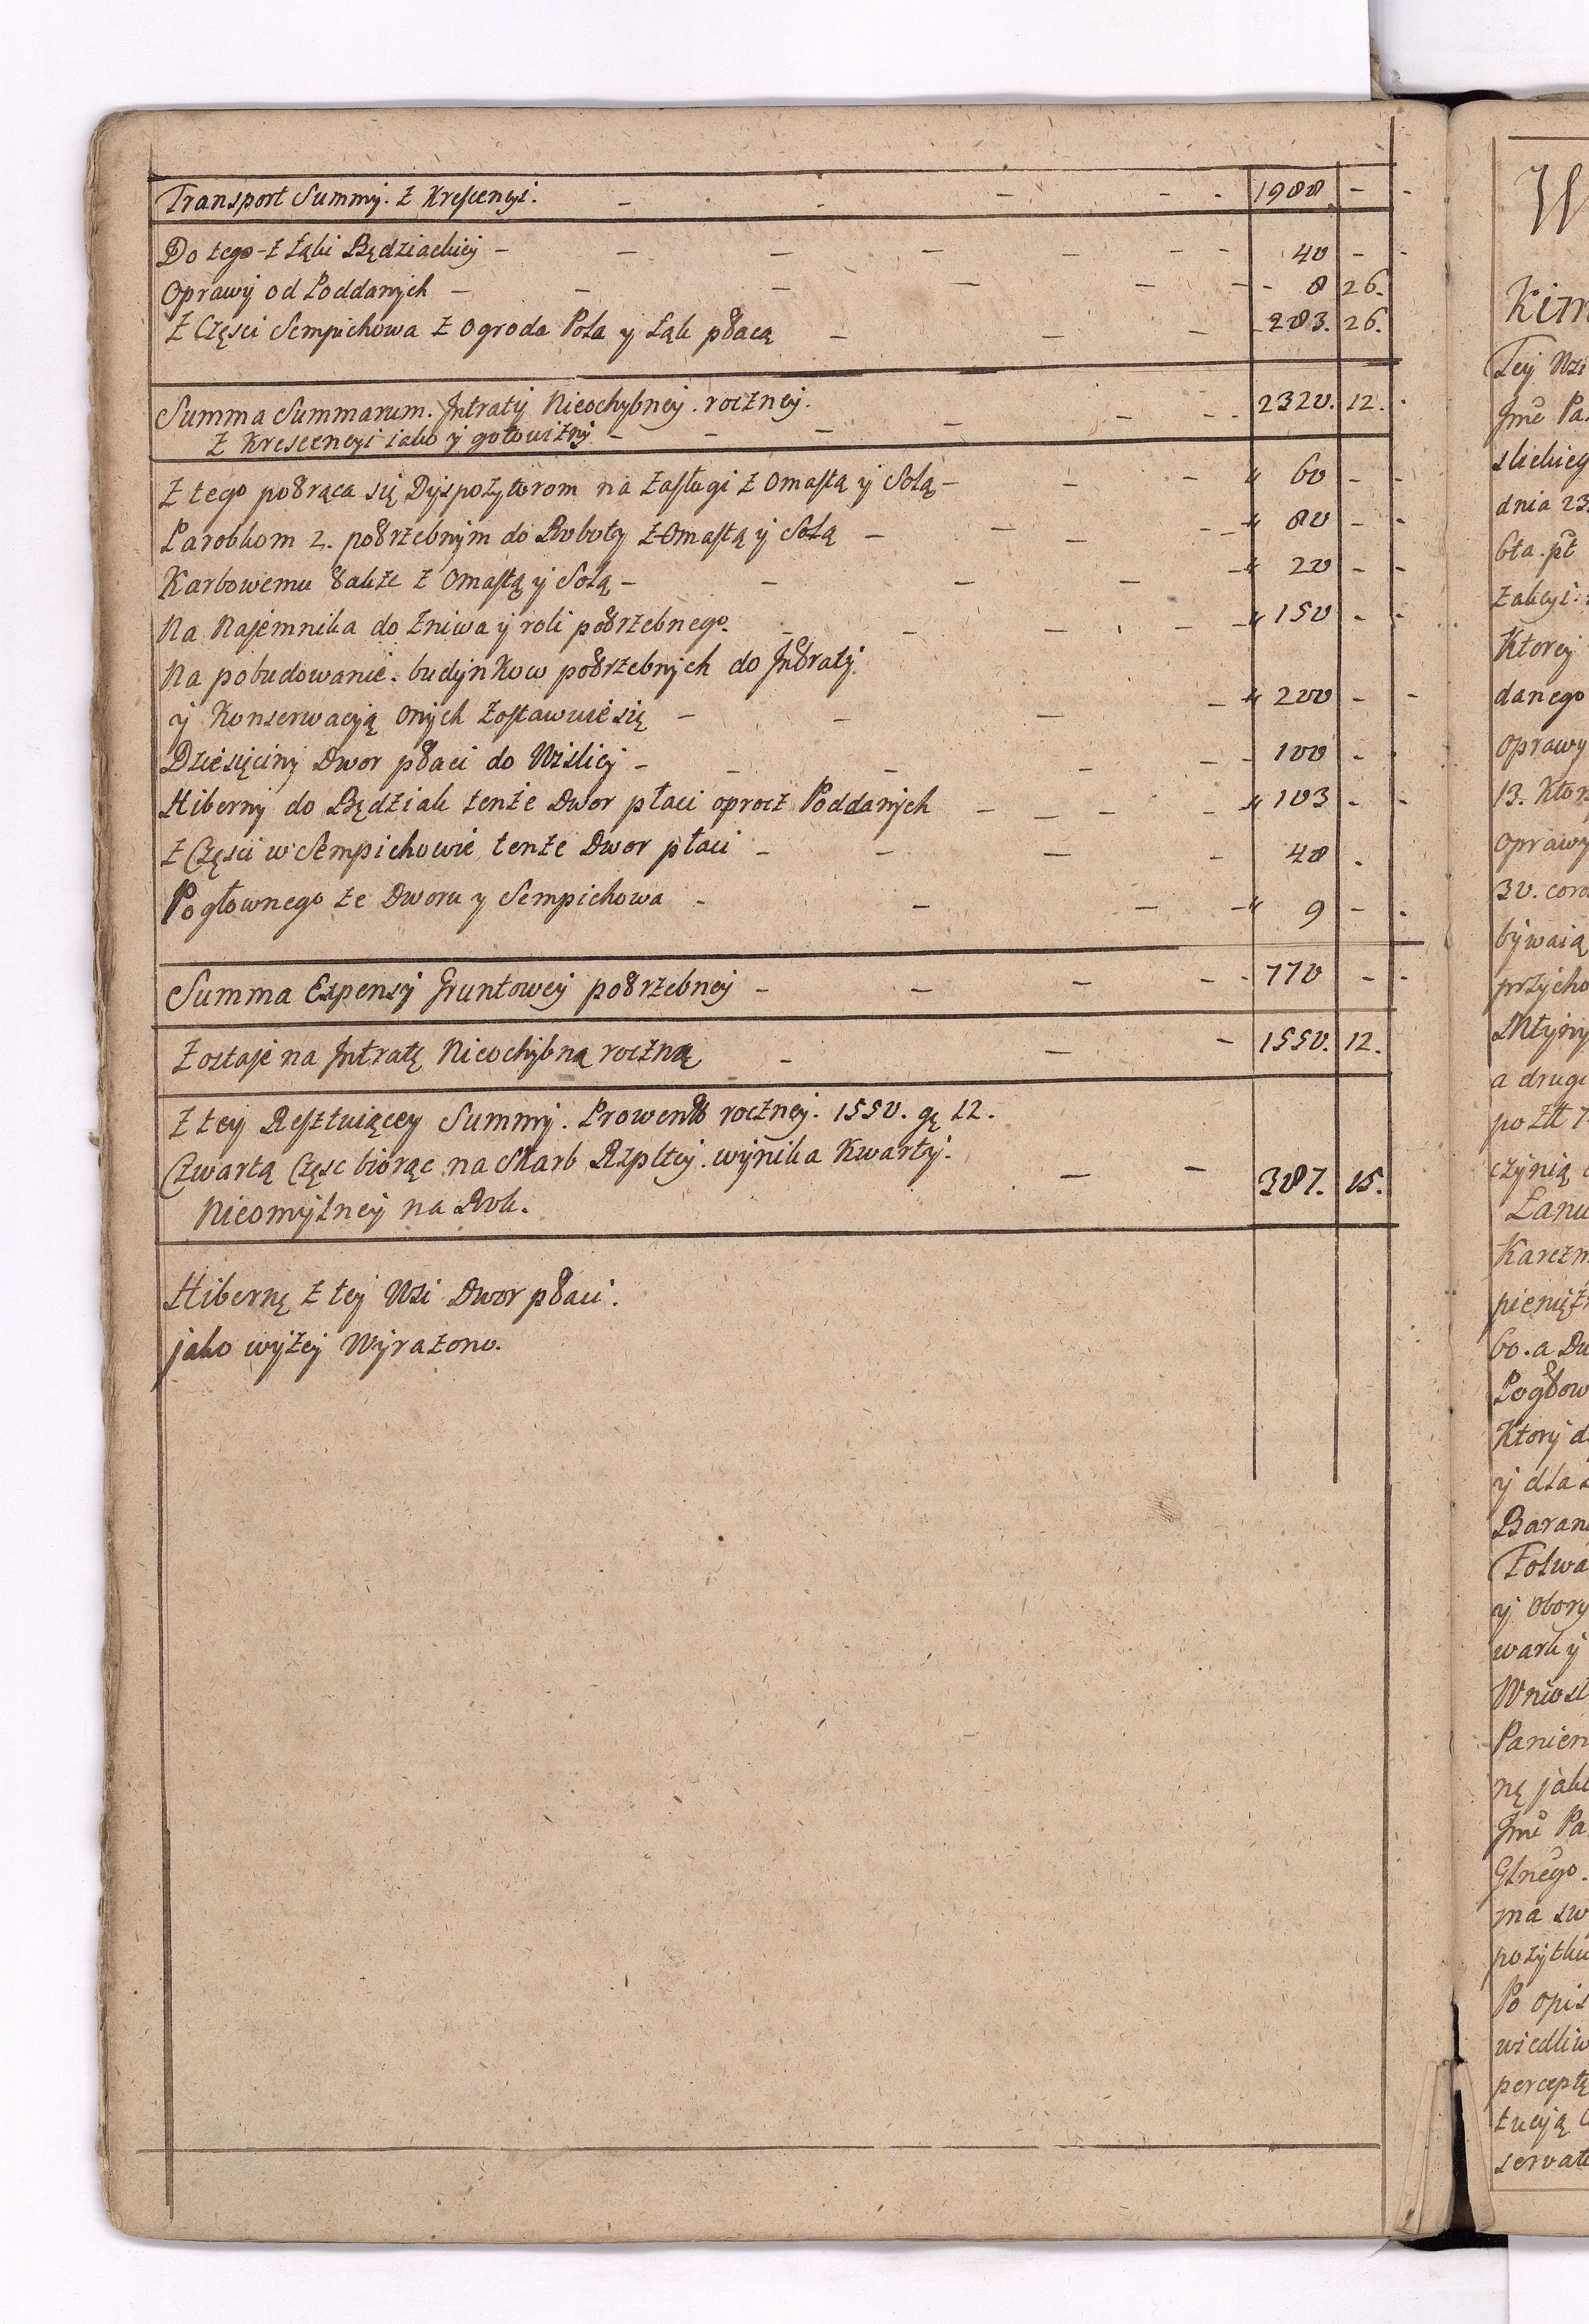 Transport Summy. z Krescencyi. - - - - - 1988. -
Do tego z Łąki Będziackiey - - - - - 40 - -
Oprawy od Poddanych - - - - - - 8 26.
Z Częsci Sempichowa z Ogroda Pola y Łąk płacą - - - 283. 26.
Summa Summarum. Jntraty Nieochybney. roczney.
z Krescencyi iako y gotowizny - - - - - - 2320. 12.
Z tego potrąca się Dyspozytorom na zasługi z Omastą y Solą - - - " 60 - -
Parobkom 2. potrzebnym do Roboty z Omastą y Solą - - - - " 80 - -
Karbowemu także z Omastą y Solą - - - - - " 20 - -
Na Najemnika do Zniwa y roli potrzebnego. - - - - " 150 - -
Na pobudowanie. budynkow potrzebnych do Jntraty
y Konserwacyją onych zostawuie się - - - - " 200 - -
Dziesięciny Dwor płaci do Wislicy - - - - - 100 - -
Hiberny do Będziak tenże Dwor płaci oprocz Poddanych - - - - " 103 - -
z Częsci w Sempichowie tenże Dwor płaci - - - - 48 -
Pogłownego ze Dworu y Sempichowa - - - - " 9 - -
Summa Expensy Gruntowey potrzebney - - - - - 770 - -
Zostaje na Jntratę Nieochybną roczną - - - 1550. 12.
Z tey Resztuiącey Summy. Prowentu roczney. 1550. gę 12.
Czwartą Częsc biorąc na Skarb Rzpltey. wynika Kwarty. - - 387. 15.
Nieomylney na Rok.
Hibernę z tey Wsi Dwor płaci.
jako wyżey Wyrażono.
Tey Wsi
Jmć Pa
dnia 23
Ktorey
danego
oprawy
13. Ktor
oprawy
bywaią
przycho
Młyny
a drugi
po Złt 7
czynią
Karczm
60. a Dw
Pogłow
Ktory d
y dla
Baran
Folwa
y obory
Wniosł
Panien
Jmć Pa
ma sw
pożytku
Po opis
wiedliw
perceptę